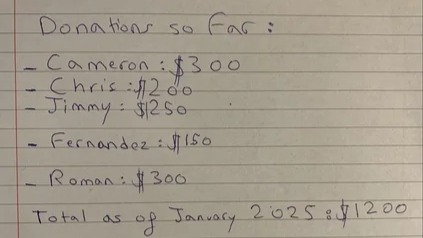 Donations so far:
- Cameron: $300
- Chris: $200
- Jimmy: $250
- Fernandez: $150
- Roman: $300
Total as of January 2025: $1200